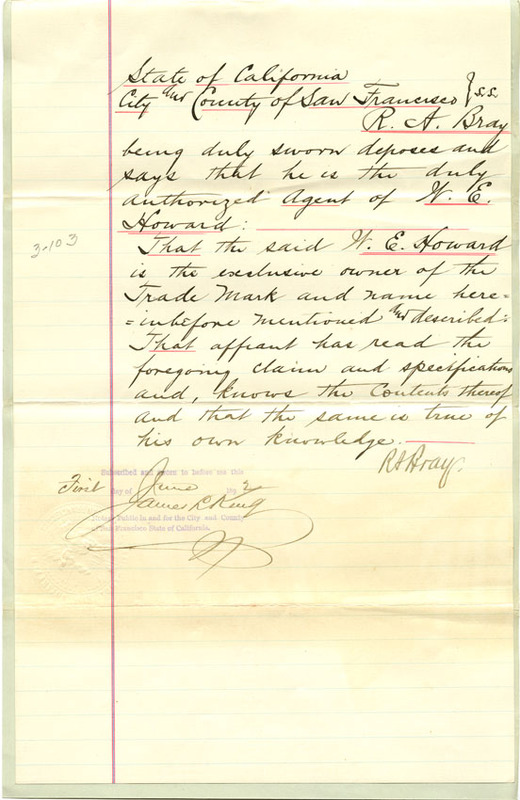 State of California
City and County of San Francisco } s.s.
R. A. Bray
being duly sworn deposes and
says that he is the duly
authorized Agent of W. E.
Howard:
That the said W. E. Howard
is the exclusive owner of the
Trade Mark and name here=
=inbefore mentioned and described:
That affiant has read the
foregoing claim and specifications
and, knows the Contents thereof
and that the same is true of
his own knowledge.
R A Bray
3-103
Subscribed and sworn to before me this
First day of June 18
James L King
Notary Public in and for the City and County
of San Francisco State of California.